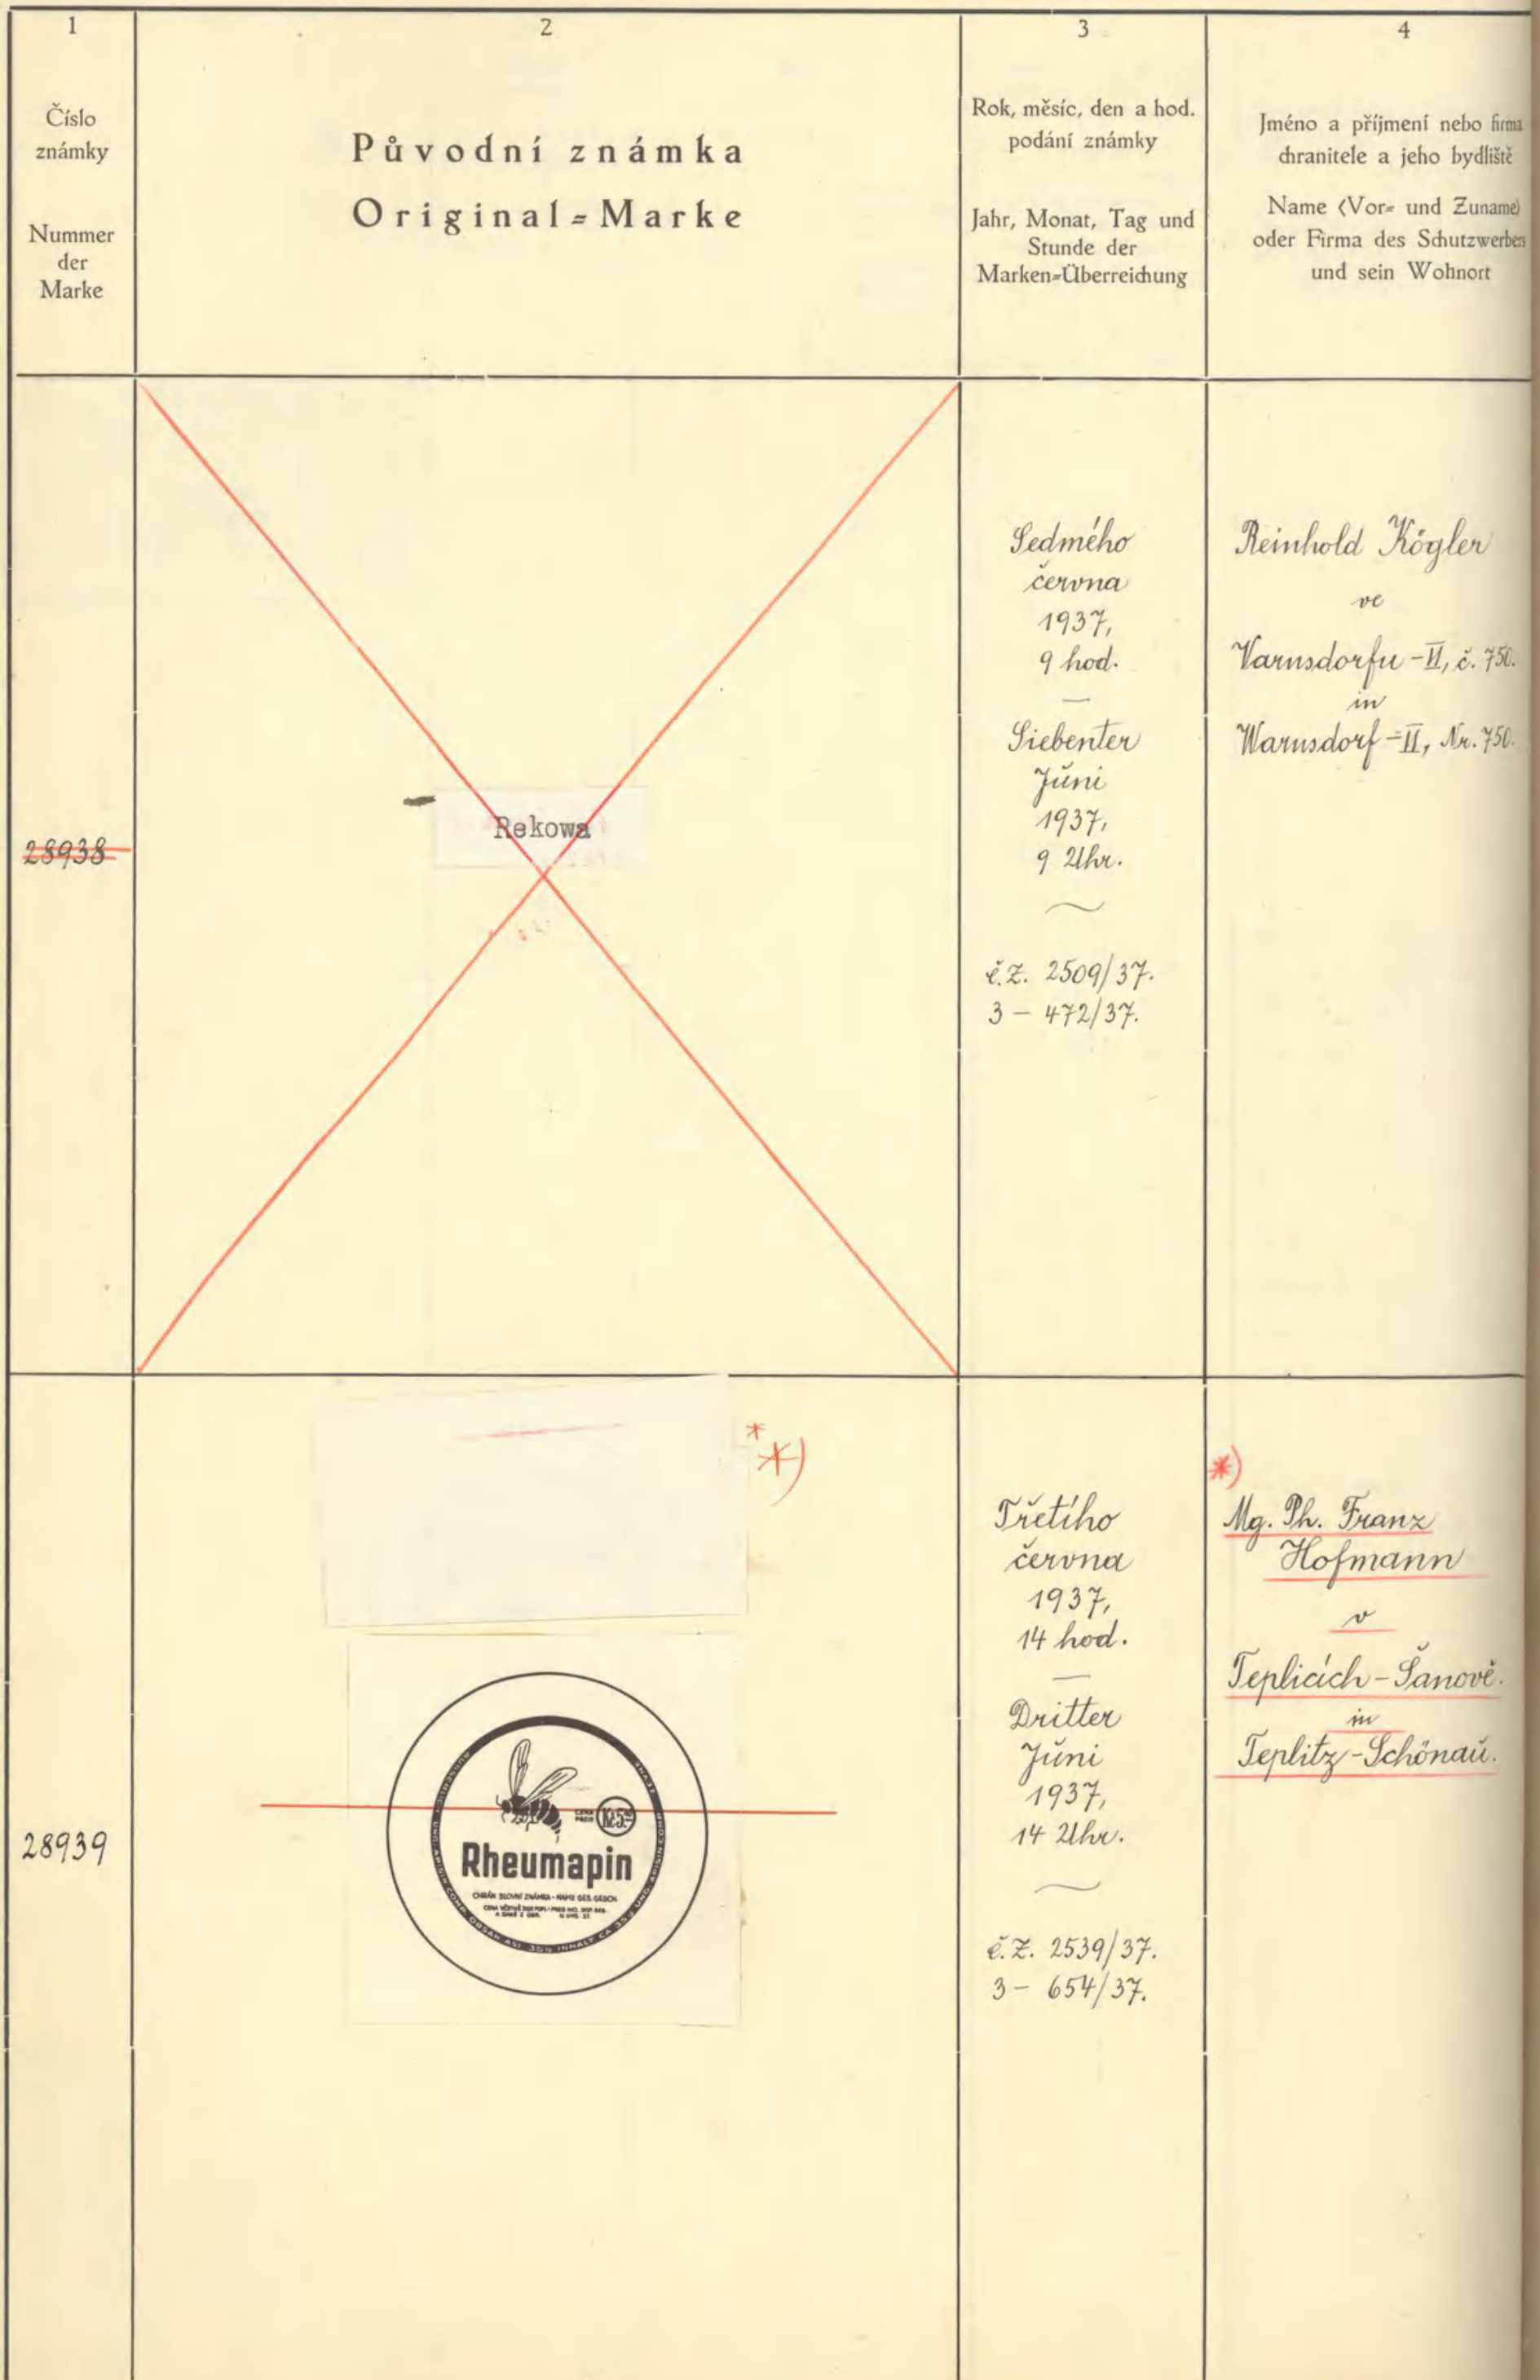 1
2
3
4
Číslo
známky
Nummer
der
Marke
Původní známka
Original=Marke
Rok, měsíc, den a hod.
podání známky
Jahr, Monat, Tag und
Stunde der
Marken=Überreichung
Jméno a příjmení nebo firma
chranitele a jeho bydliště
Name (Vor= und Zuname)
oder Firma des Schutzwerbers
und sein Wohnort
28938
Rekowa
Sedmého
června
1937,
9 hod.
—
Siebenter
Juni
1937,
9 Uhr.
č.Z. 2509/37.
3 – 472/37.
Reinhold Kögler
ve
Varnsdorfu-II, č. 750.
in
Warnsdorf-II, Nr. 750.
28939
**)
CENA
PREIS
Kč 5.–
Rheumapin
CHRÁN. SLOVNÍ ZNÁMKA - NAME GES. GESCH.
OBSAH ASI 35 g INHALT CA 35 g
Třetího
června
1937,
14 hod.
—
Dritter
Juni
1937,
14 Uhr.
č.Z. 2539/37.
3 – 654/37.
*)
Mg. Ph. Franz
Hofmann
v
Teplicích-Šanově.
in
Teplitz-Schönau.